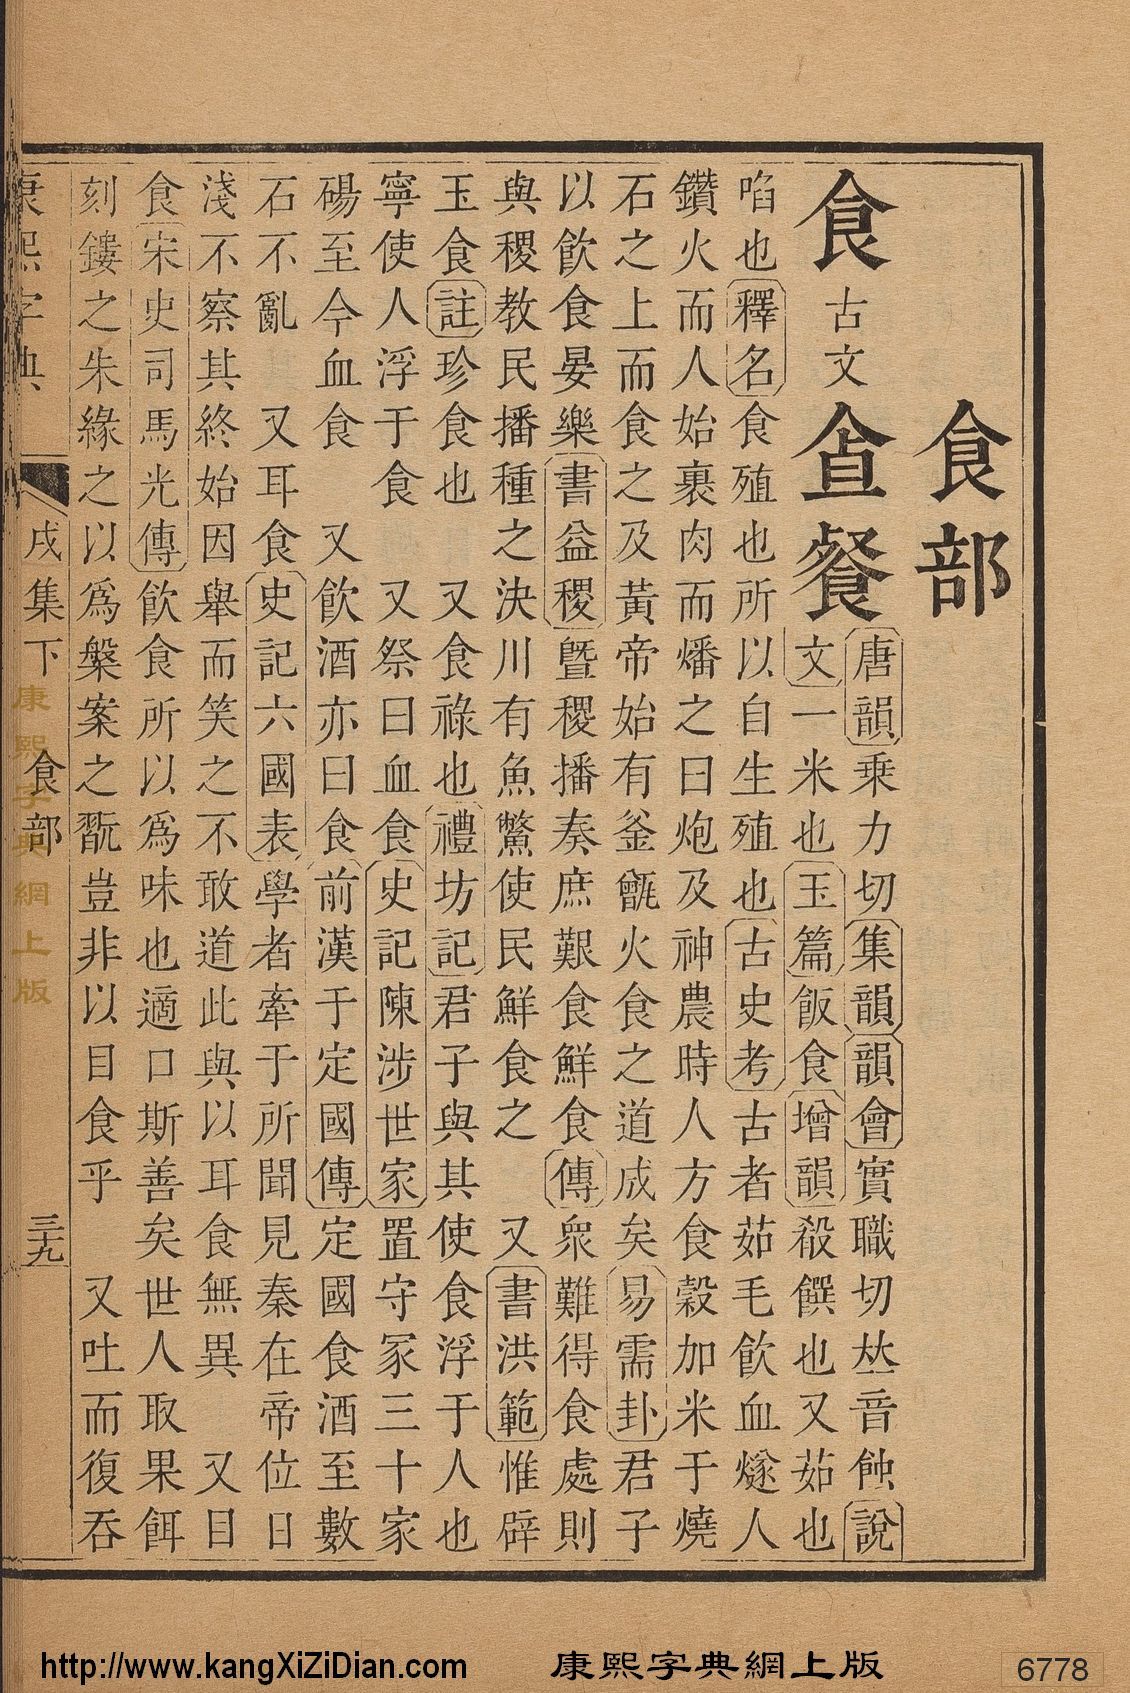 食部
食 古文 𠊊 餐
唐韻乗力切集韻韻會實職切𠀤音蝕說
文一米也玉篇飯食增韻殽饌也又茹也
啗也釋名食殖也所以自生殖也古史考古者茹毛飲血燧人
鑽火而人始裹肉而燔之曰炮及神農時人方食穀加米于燒
石之上而食之及黃帝始有釜甑火食之道成矣易需卦君子
以飲食晏樂書益稷曁稷播奏庶艱食鮮食傳衆難得食處則
與稷教民播種之決川有魚鱉使民鮮食之 又書洪範惟辟
玉食註珍食也 又食祿也禮坊記君子與其使食浮于人也
寧使人浮于食 又祭曰血食史記陳涉世家置守冢三十家
碭至今血食 又飲酒亦曰食前漢于定國傳定國食酒至數
石不亂 又耳食史記六國表學者牽于所聞見秦在帝位日
淺不察其終始因舉而笑之不敢道此與以耳食無異 又目
食宋史司馬光傳飲食所以爲味也適口斯善矣世人取果餌
刻鏤之朱緣之以爲槃案之翫豈非以目食乎 又吐而復吞
康熙字典 戌集下 食部 三十九
康熙字典網上版
http://www.kangXiZiDian.com 康熙字典網上版 6778